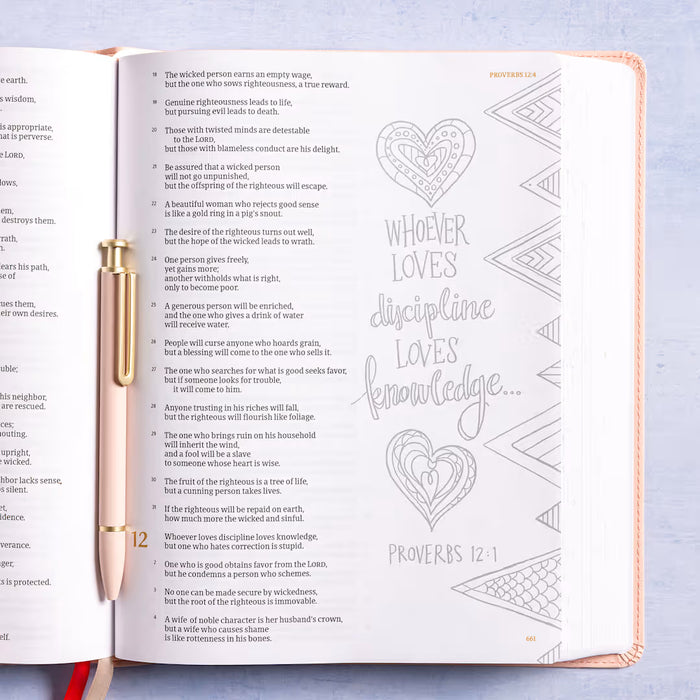 e earth.
s wisdom,
is appropriate,
hat is perverse.
e LORD,
lows,
em,
destroys them.
rath,
n.
lears his path,
se of
cues them,
eir own desires.
uble;
his neighbor,
are rescued.
ces;
houting.
upright,
e wicked.
hbor lacks sense,
s silent.
et,
idence.
verance,
ger,
ts is protected.
self.
PROVERBS 12:4
18 The wicked person earns an empty wage,
but the one who sows righteousness, a true reward.
19 Genuine righteousness leads to life,
but pursuing evil leads to death.
20 Those with twisted minds are detestable
to the LORD,
but those with blameless conduct are his delight.
21 Be assured that a wicked person
will not go unpunished,
but the offspring of the righteous will escape.
22 A beautiful woman who rejects good sense
is like a gold ring in a pig's snout.
23 The desire of the righteous turns out well,
but the hope of the wicked leads to wrath.
24 One person gives freely,
yet gains more;
another withholds what is right,
only to become poor.
25 A generous person will be enriched,
and the one who gives a drink of water
will receive water.
26 People will curse anyone who hoards grain,
but a blessing will come to the one who sells it.
27 The one who searches for what is good seeks favor,
but if someone looks for trouble,
it will come to him.
28 Anyone trusting in his riches will fall,
but the righteous will flourish like foliage.
29 The one who brings ruin on his household
will inherit the wind,
and a fool will be a slave
to someone whose heart is wise.
30 The fruit of the righteous is a tree of life,
but a cunning person takes lives.
31 If the righteous will be repaid on earth,
how much more the wicked and sinful.
12 Whoever loves discipline loves knowledge,
but one who hates correction is stupid.
2 One who is good obtains favor from the LORD,
but he condemns a person who schemes.
3 No one can be made secure by wickedness,
but the root of the righteous is immovable.
4 A wife of noble character is her husband's crown,
but a wife who causes shame
is like rottenness in his bones.
WHOEVER
LOVES
discipline
LOVES
knowledge...
PROVERBS 12:1
661